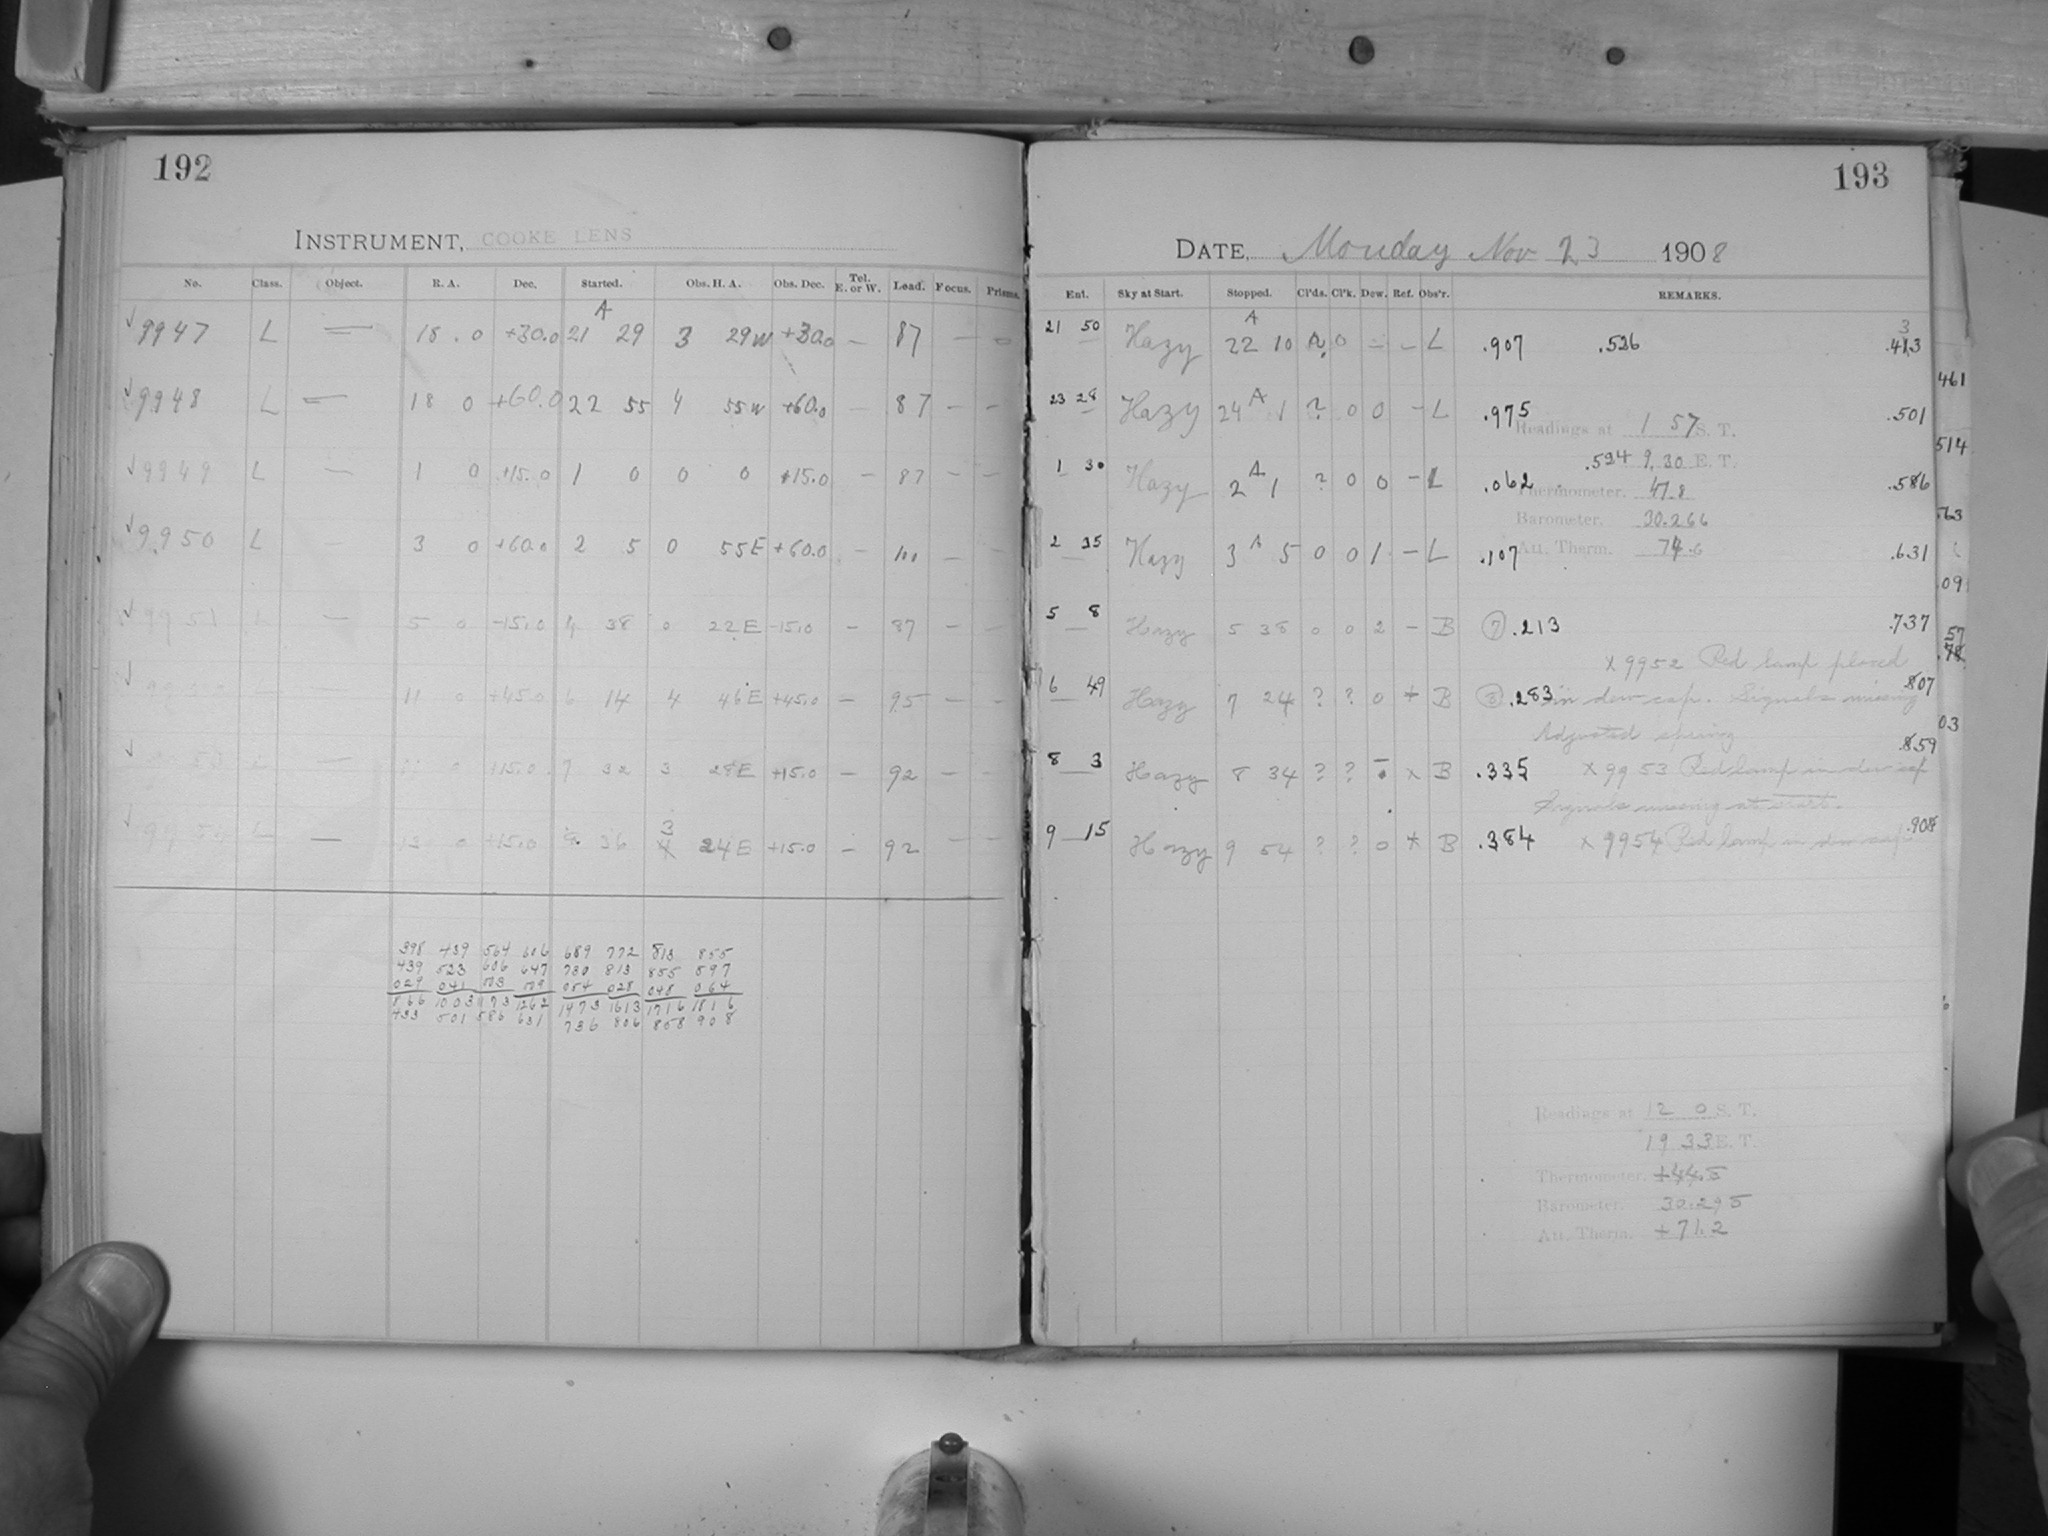 192
INSTRUMENT, COOKE LENS
No. Class. Object. R. A. Dec. Started. Obs. H. A. Obs. Dec. Tel. E. or W. Load. Focus. Prisms.
A
√ 9947 L — 18 . 0 +30.0 21 29 3 29 W +30.0 — 87 — —
√ 9948 L — 18 0 +60.0 22 55 4 55 W +60.0 — 87 — —
√ 9949 L — 1 0 +15.0 1 0 0 0 +15.0 — 87 — —
√ 9950 L — 3 0 +60.0 2 5 0 55 E +60.0 — — —
√ 9951 L — 5 0 -15.0 4 38 0 22 E -15.0 — 87 — —
√ 11 0 +45.0 6 14 4 46 E +45.0 — 95 — —
√ 53 L — 0 +15.0 7 32 3 28 E +15.0 — 92 — —
√ 9954 L — 13 0 +15.0 36 3 24 E +15.0 — 92 — —
398 439 564 606 689 772 813 855
439 523 606 647 730 813 855 897
029 041 054 028 048 064
866 1003 1173 1262 1473 1613 1716 1816
433 501 586 631 736 806 858 908
193
DATE, Monday Nov 23 1908
Ent. Sky at Start. Stopped. Cl'ds. Cl'k. Dew. Ref. Obs'r. REMARKS.
A 3
21 50 Hazy 22 10 0 — — L .907 .526
461
23 28 Hazy 24 A 1 ? 0 0 — L .975 .501
Readings at 1 57 S. T.
514
.594 9.30 E. T.
1 30 Hazy 2 A 1 ? 0 0 — L .062 .586
Thermometer. 47.8
Barometer. 30.266
2 35 Hazy 3 A 5 0 0 1 — L .107 .631
Att. Therm. 74.6
5 8 Hazy 5 38 0 0 2 — B (7) .213 .737
x 9952 Red lamp placed
6 49 Hazy 7 24 ? ? 0 + B (8) .283 in dew cap. Signals missing .807
Adjusted spring
8 3 Hazy 8 34 ? ? x B .335 x 9953 Red lamp in dew cap .859
Signals missing at start.
9 15 Hazy 9 54 ? ? 0 x B .384 x 9954 Red lamp in dew cap .908
Readings at 12 0 S. T.
19 33 E. T.
Thermometer. +44.5
Barometer. 30.295
Att. Therm. +71.2